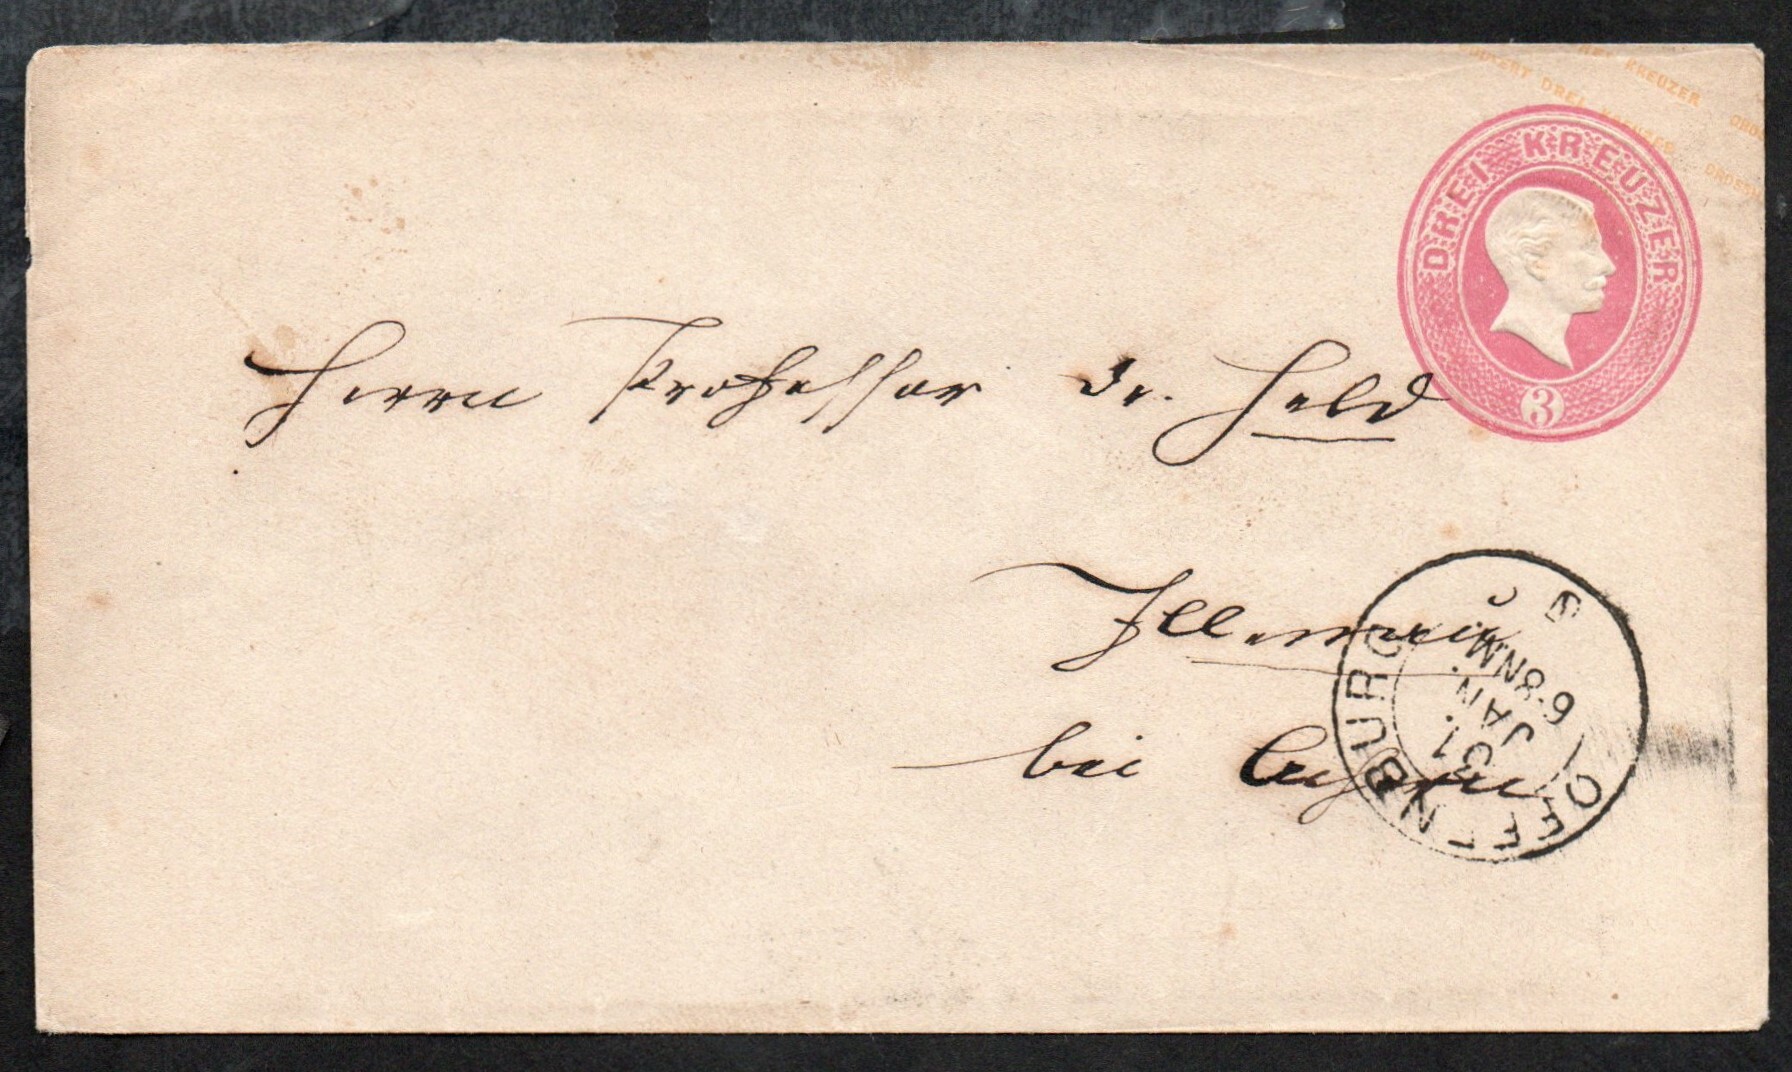 DREI KREUZER
DREI KREUZER
DREI KREUZER
3
Herrn Professor Dr. Held
Illenau
bei Achern
OFFENBURG
31.
JAN.
6-8NM